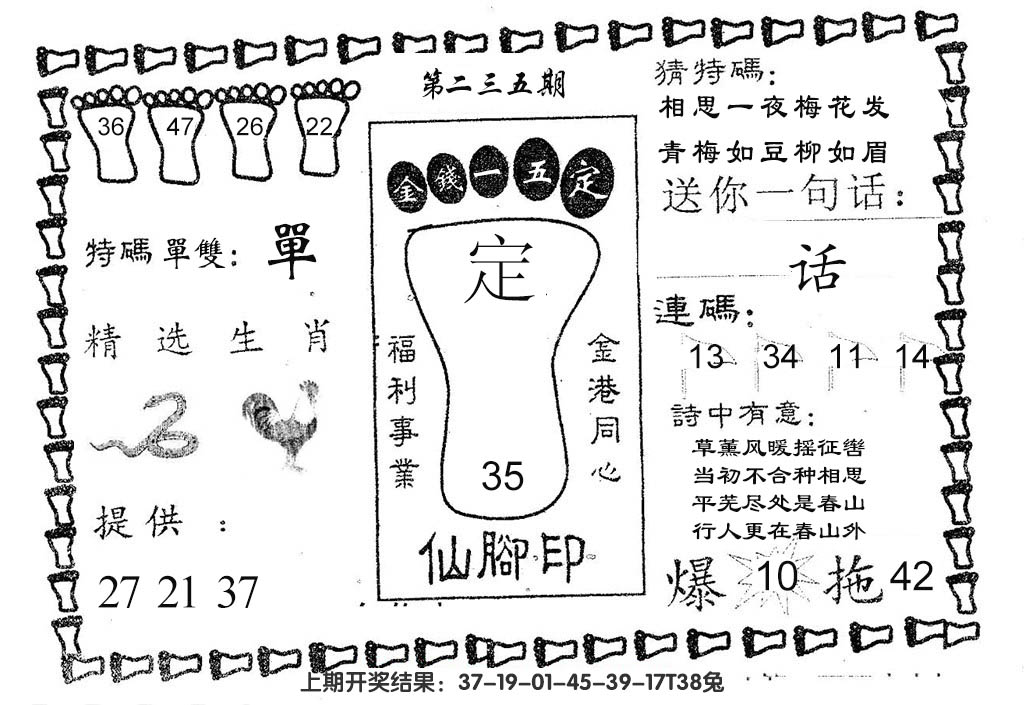 第二三五期
36 47 26 22
特碼單雙：單
精选生肖
提供：
27 21 37
金錢一五定
定
福利事業
金港同心
35
仙腳印
猜特碼：
相思一夜梅花发
青梅如豆柳如眉
送你一句话：
话
連碼：
13 34 11 14
詩中有意：
草薰风暖摇征辔
当初不合种相思
平芜尽处是春山
行人更在春山外
爆 10 拖 42
上期开奖结果：37-19-01-45-39-17T38兔